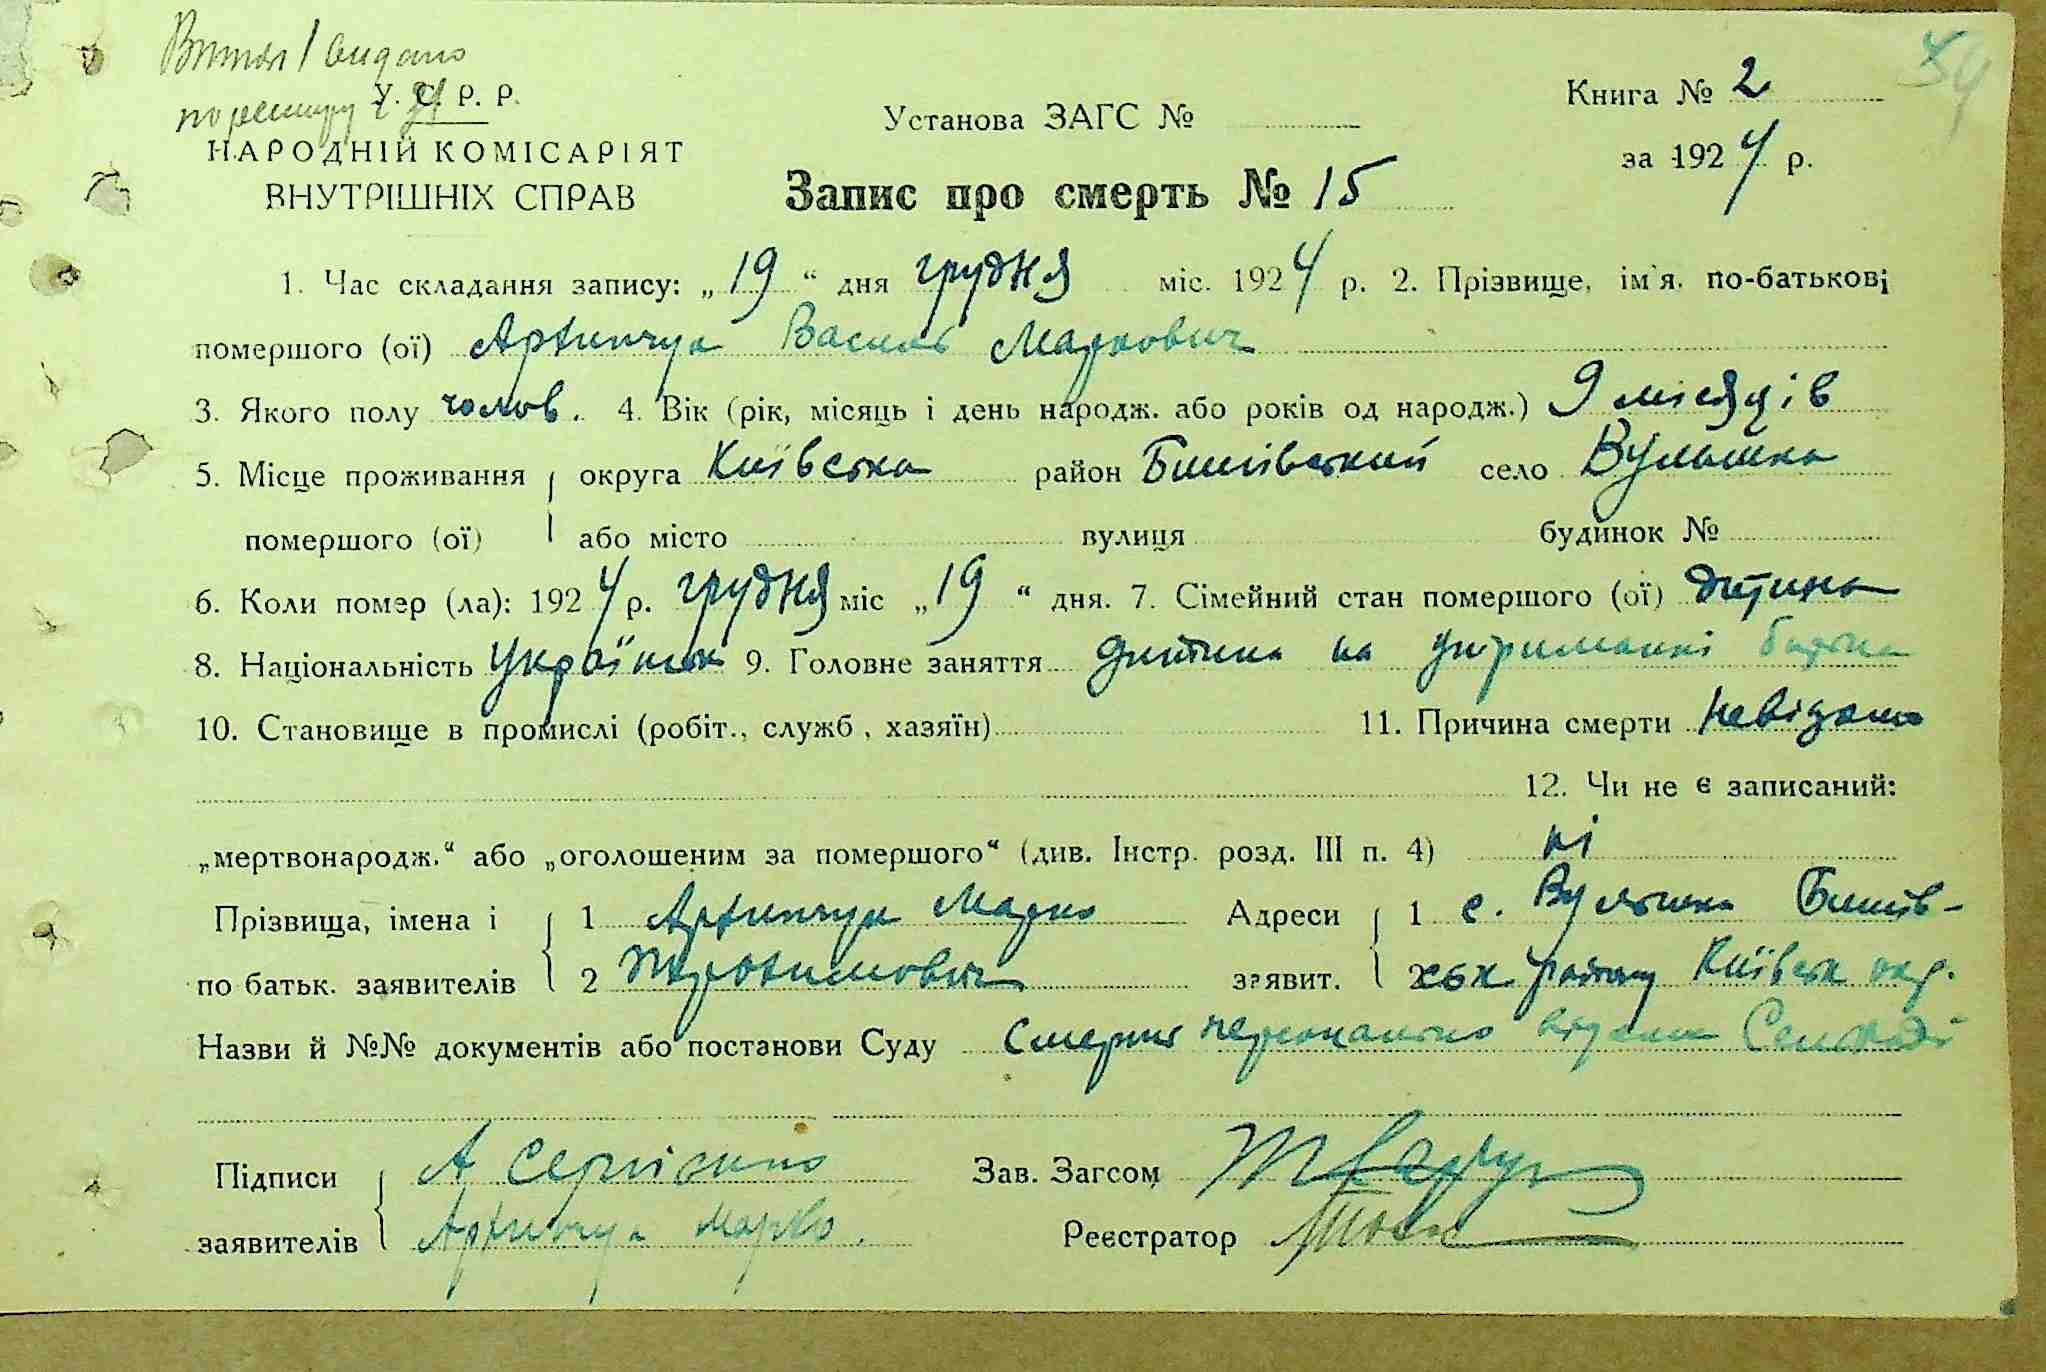 Витяг видано
по реєстру 21
59
У. С. Р. Р.
НАРОДНІЙ КОМІСАРІЯТ
ВНУТРІШНІХ СПРАВ
Установа ЗАГС №
Книга № 2
за 1924 р.
Запис про смерть № 15
1. Час складання запису: „19“ дня грудня міс. 1924 р. 2. Прізвище, ім'я, по-батькові
помершого (ої) Артипчук Василь Маркович
3. Якого полу чолов. 4. Вік (рік, місяць і день народж. або років од народж.) 9 місяців
5. Місце проживання округа Київська район Бишівський село Вульшка
помершого (ої) або місто вулиця будинок №
6. Коли помер (ла): 1924 р. грудня міс „19“ дня. 7. Сімейний стан помершого (ої) дитина
8. Національність Українськ 9. Головне заняття дитина на утриманні батька
10. Становище в промислі (робіт., служб., хазяїн) 11. Причина смерти невідома
12. Чи не є записаний:
„мертвонародж.“ або „оголошеним за помершого“ (див. Інстр. розд. III п. 4) ні
Прізвища, імена і 1 Артипчук Марко Адреси 1 с. Бишів-
по батьк. заявителів 2 заявит. 2 ськ. району Київськ окр.
Назви й №№ документів або постанови Суду Смерть персонально відома Сельраді
Підписи А Зав. Загсом
заявителів Артипчук Марко. Реєстратор